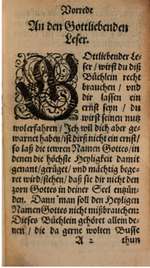 Vorrede
An den Gottliebenden
Leser.
GOttliebender Le-
ser / wirst du diß
Büchlein recht
brauchen / und
dir lassen ein
ernst seyn / du
wirst seinen nutz
wol erfahren / Ich wil dich aber ge-
warnet haben / ist dirs nicht ein ernst /
so laß die tewren Namen Gottes / in
denen die höchste Heyligkeit damit
genant / gerüget / und mächtig bege-
ret wird / stehen / daß sie dir nicht den
zorn Gottes in deiner Seel entzün-
den. Dann man soll den Heyligen
Namen Gottes nicht mißbrauchen:
Dieses Büchlein gehöret allein de-
nen / die da gerne wolten Busse
A 2 thun